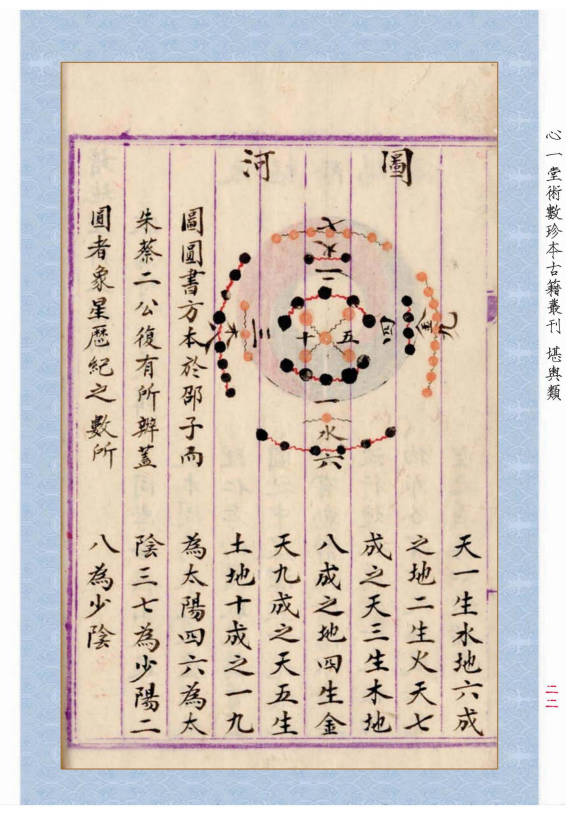 心一堂術數珍本古籍叢刊 堪輿類
二二
河圖
七火二
三木八
五十
四金九
一水六
天一生水地六成
之地二生火天七
成之天三生木地
八成之地四生金
天九成之天五生
土地十成之一九
為太陽四六為太
陰三七為少陽二
八為少陰
圖圓書方本於邵子而
朱蔡二公復有所辨蓋
圓者象星歷紀之數所